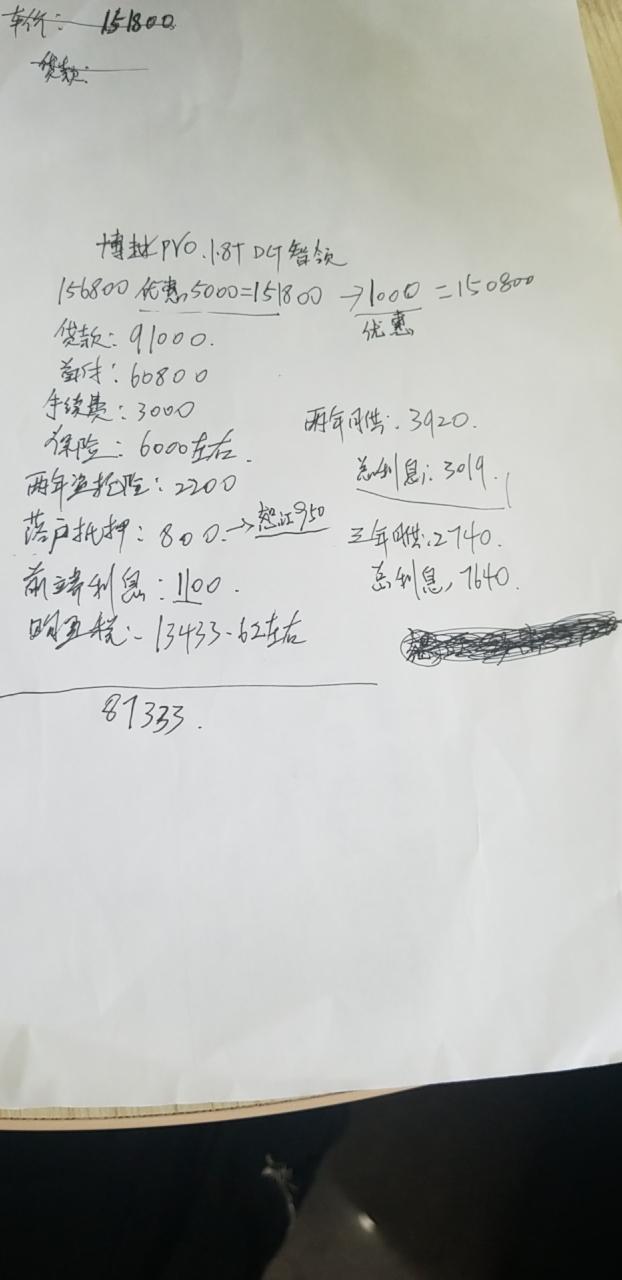 车价: 151800
贷款:
博越PVO.1.8T DCT智领
156800 优惠5000=151800 →1000 =150800
优惠
贷款: 91000.
首付: 60800
手续费: 3000
保险: 6000左右.
两年盗抢险: 2200
落户抵押: 800.→怒江950
前端利息: 1100.
购置税:- 13433.62左右
87333.
两年月供: 3920.
总利息: 3019.
三年月供: 2740.
总利息, 7640.